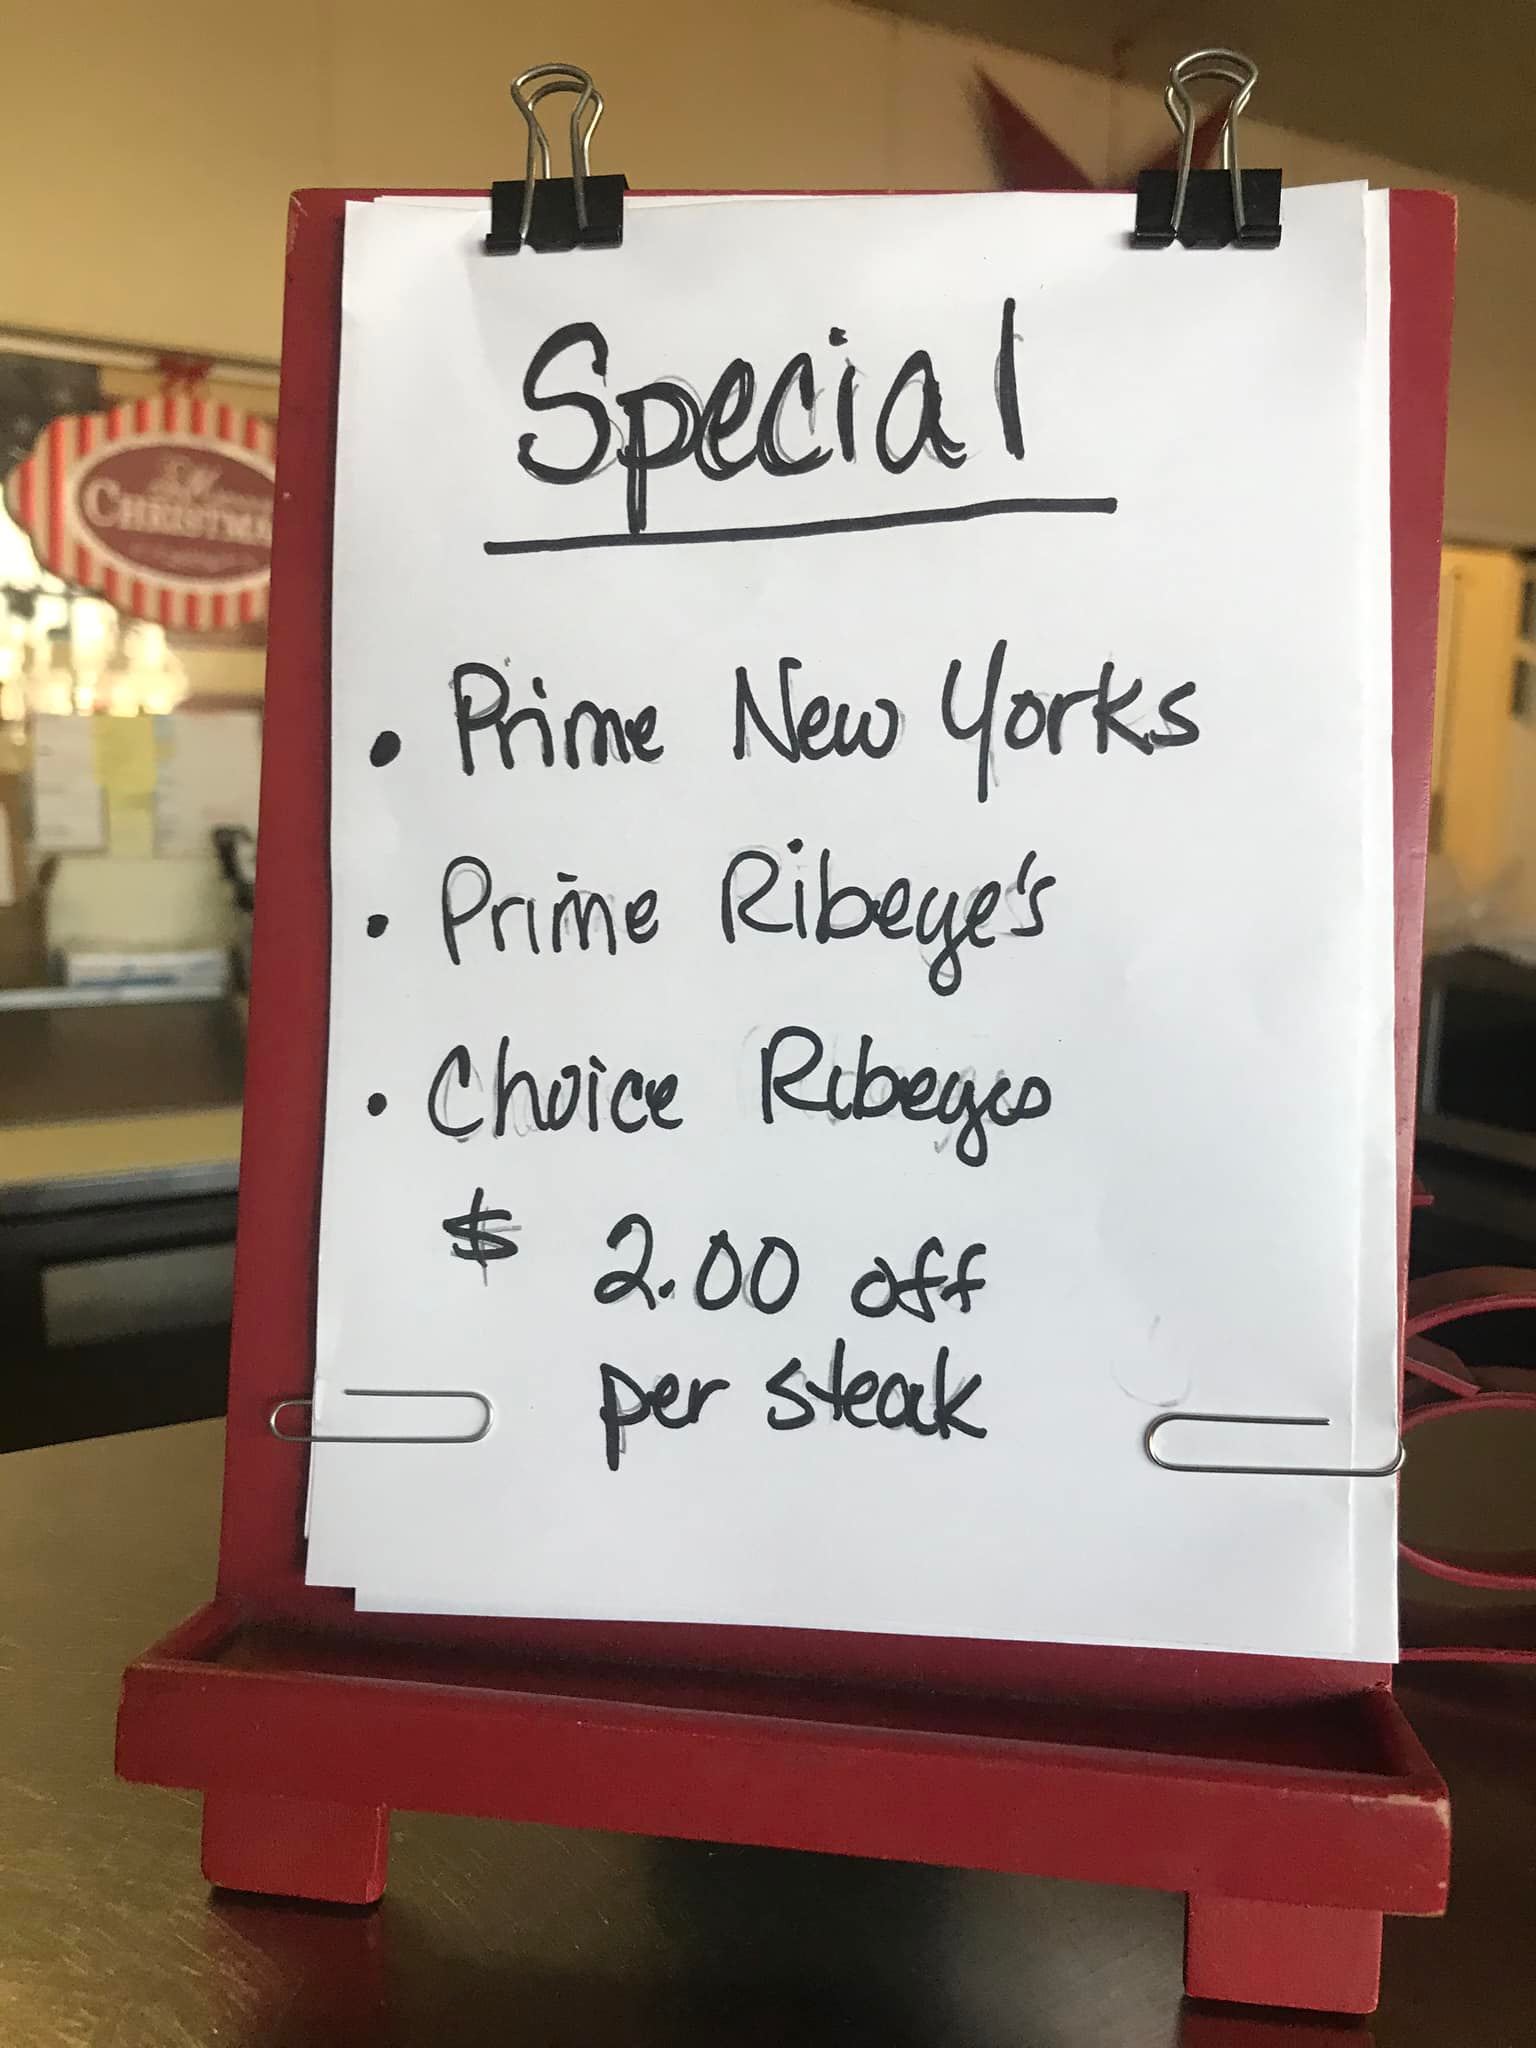 CHRISTMA
Special
• Prime New Yorks
• Prime Ribeye's
• Choice Ribeyes
$ 2.00 off
per steak